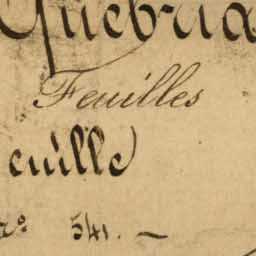 Quebra
Feuilles
euille
No 541. —